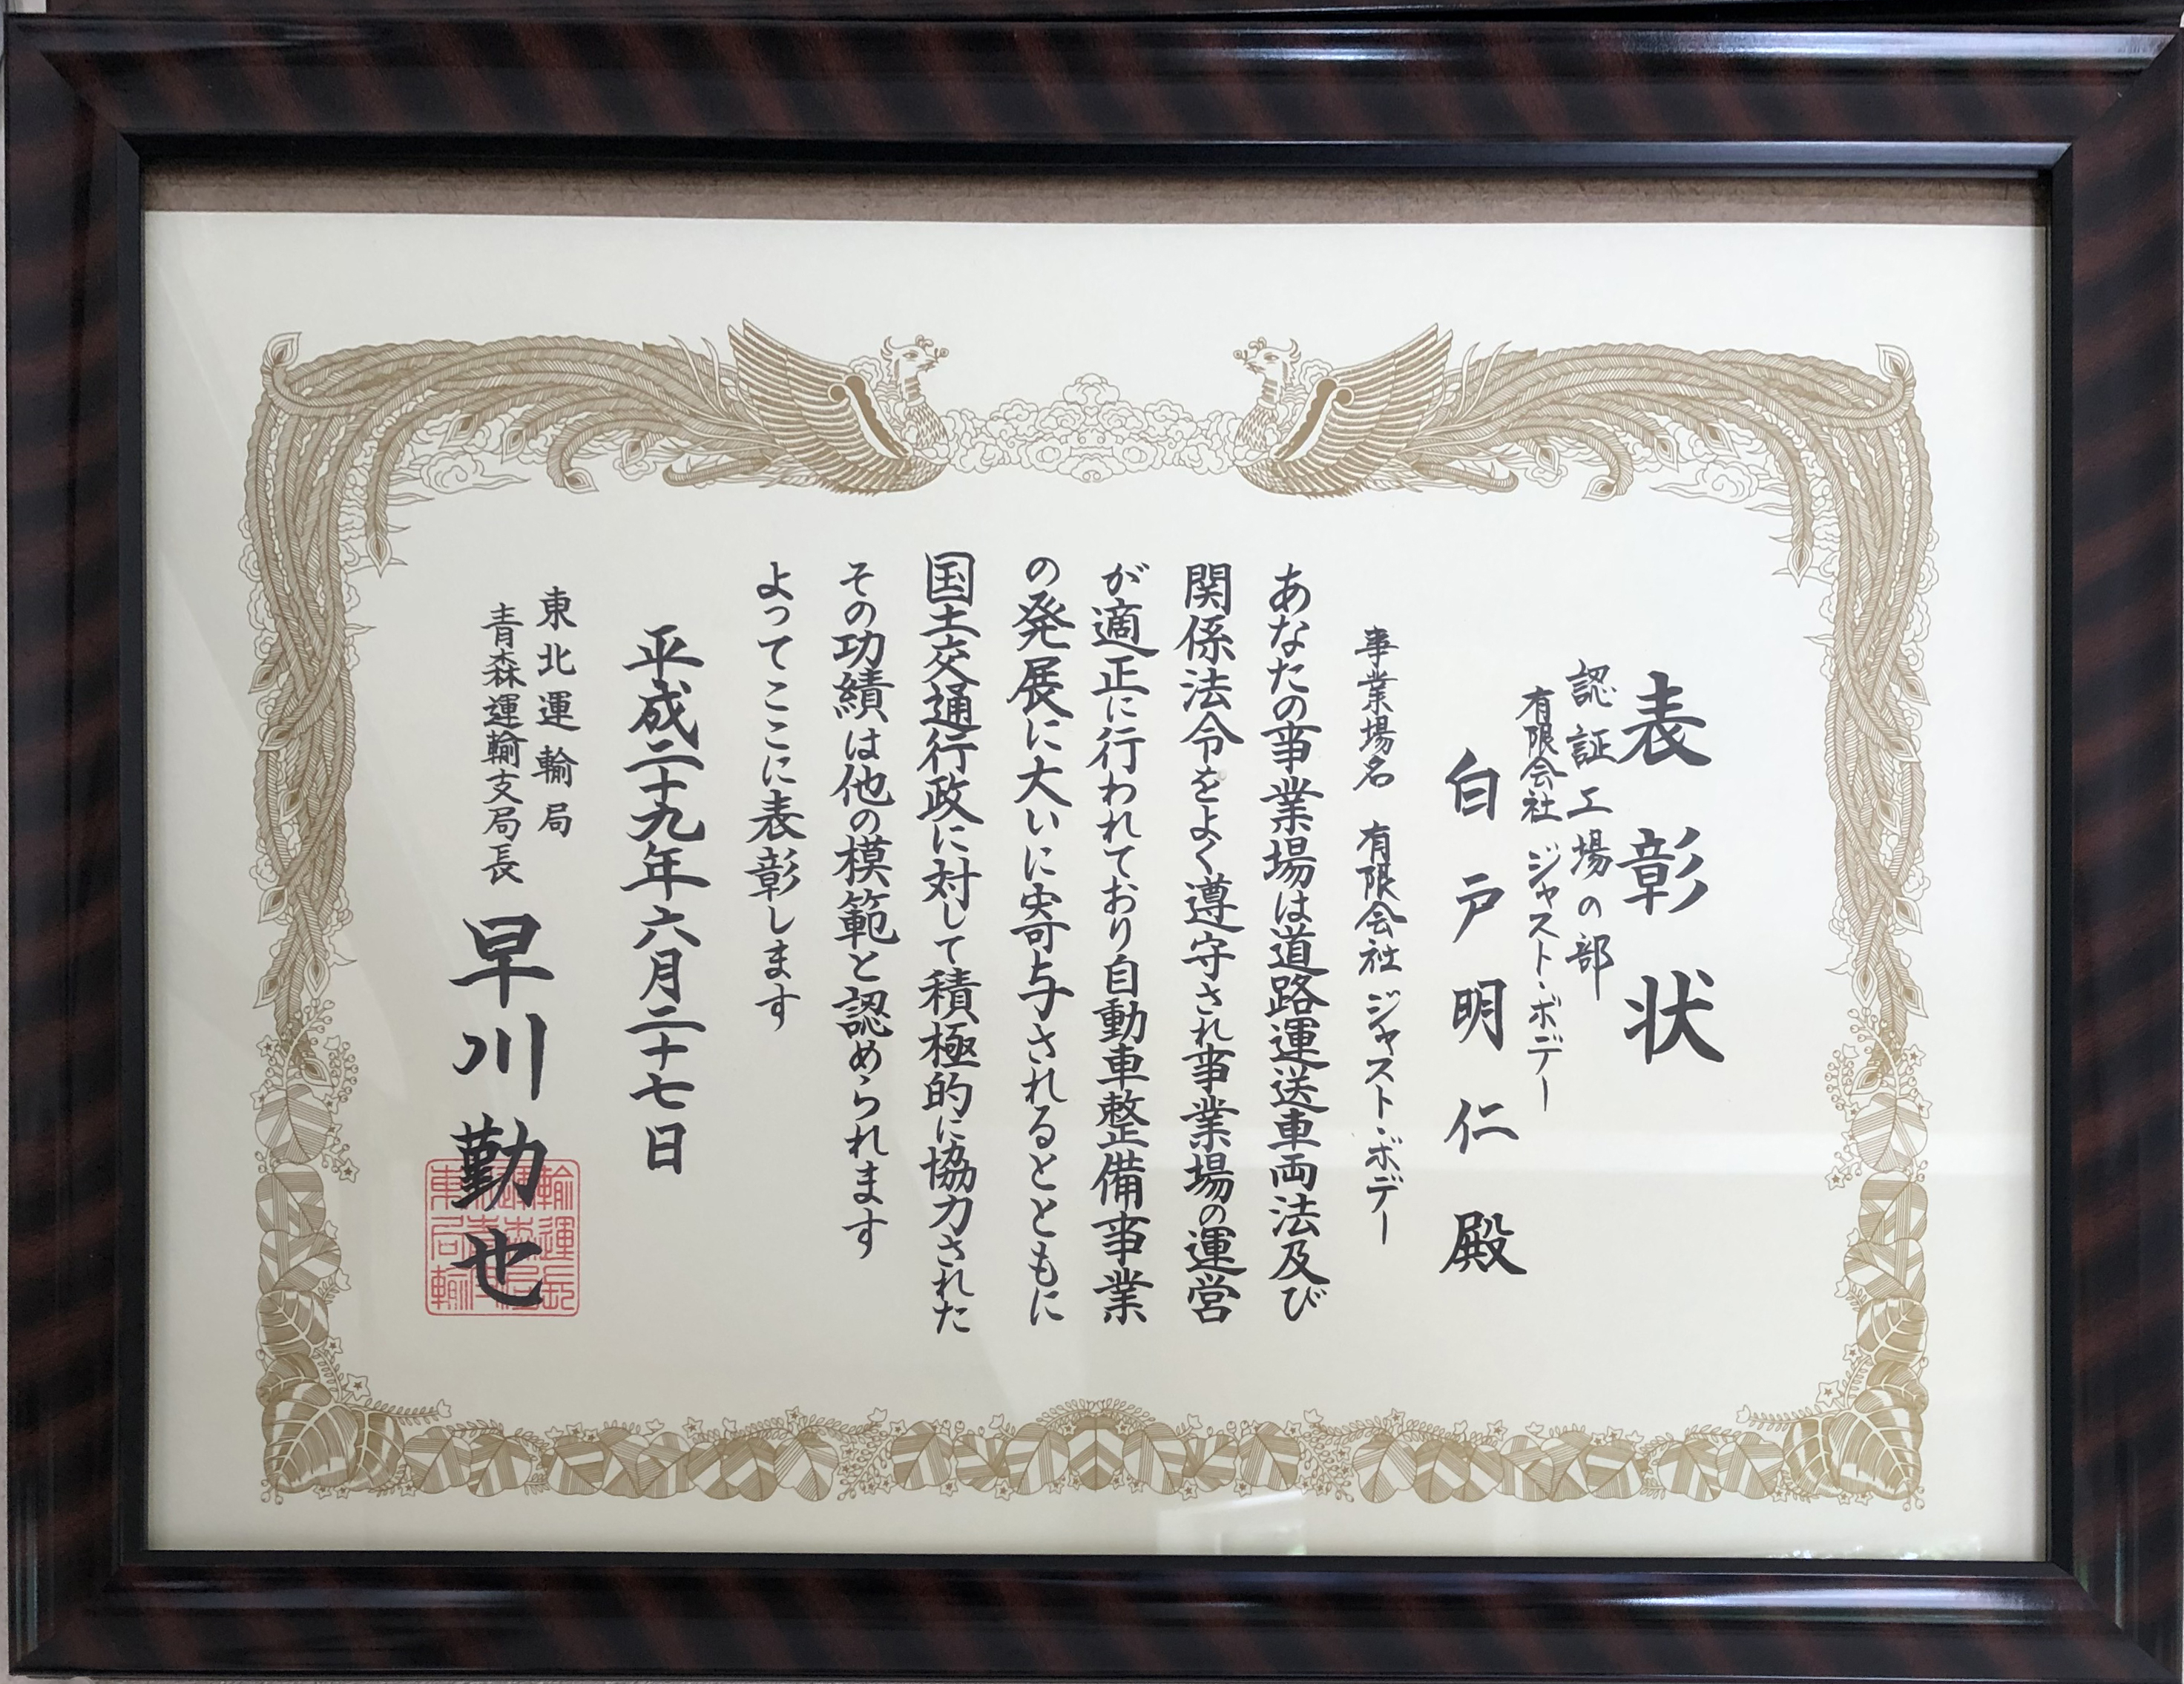 表彰状
認証工場の部
有限会社 ジャスト・ボデー
白戸明仁殿
事業場名 有限会社 ジャスト・ボデー
あなたの事業場は道路運送車両法及び
関係法令をよく遵守され事業場の運営
が適正に行われており自動車整備事業
の発展に大いに寄与されるとともに
国土交通行政に対して積極的に協力された
その功績は他の模範と認められます
よってここに表彰します
平成二十九年六月二十七日
東北運輸局
青森運輸支局長
早川勤也